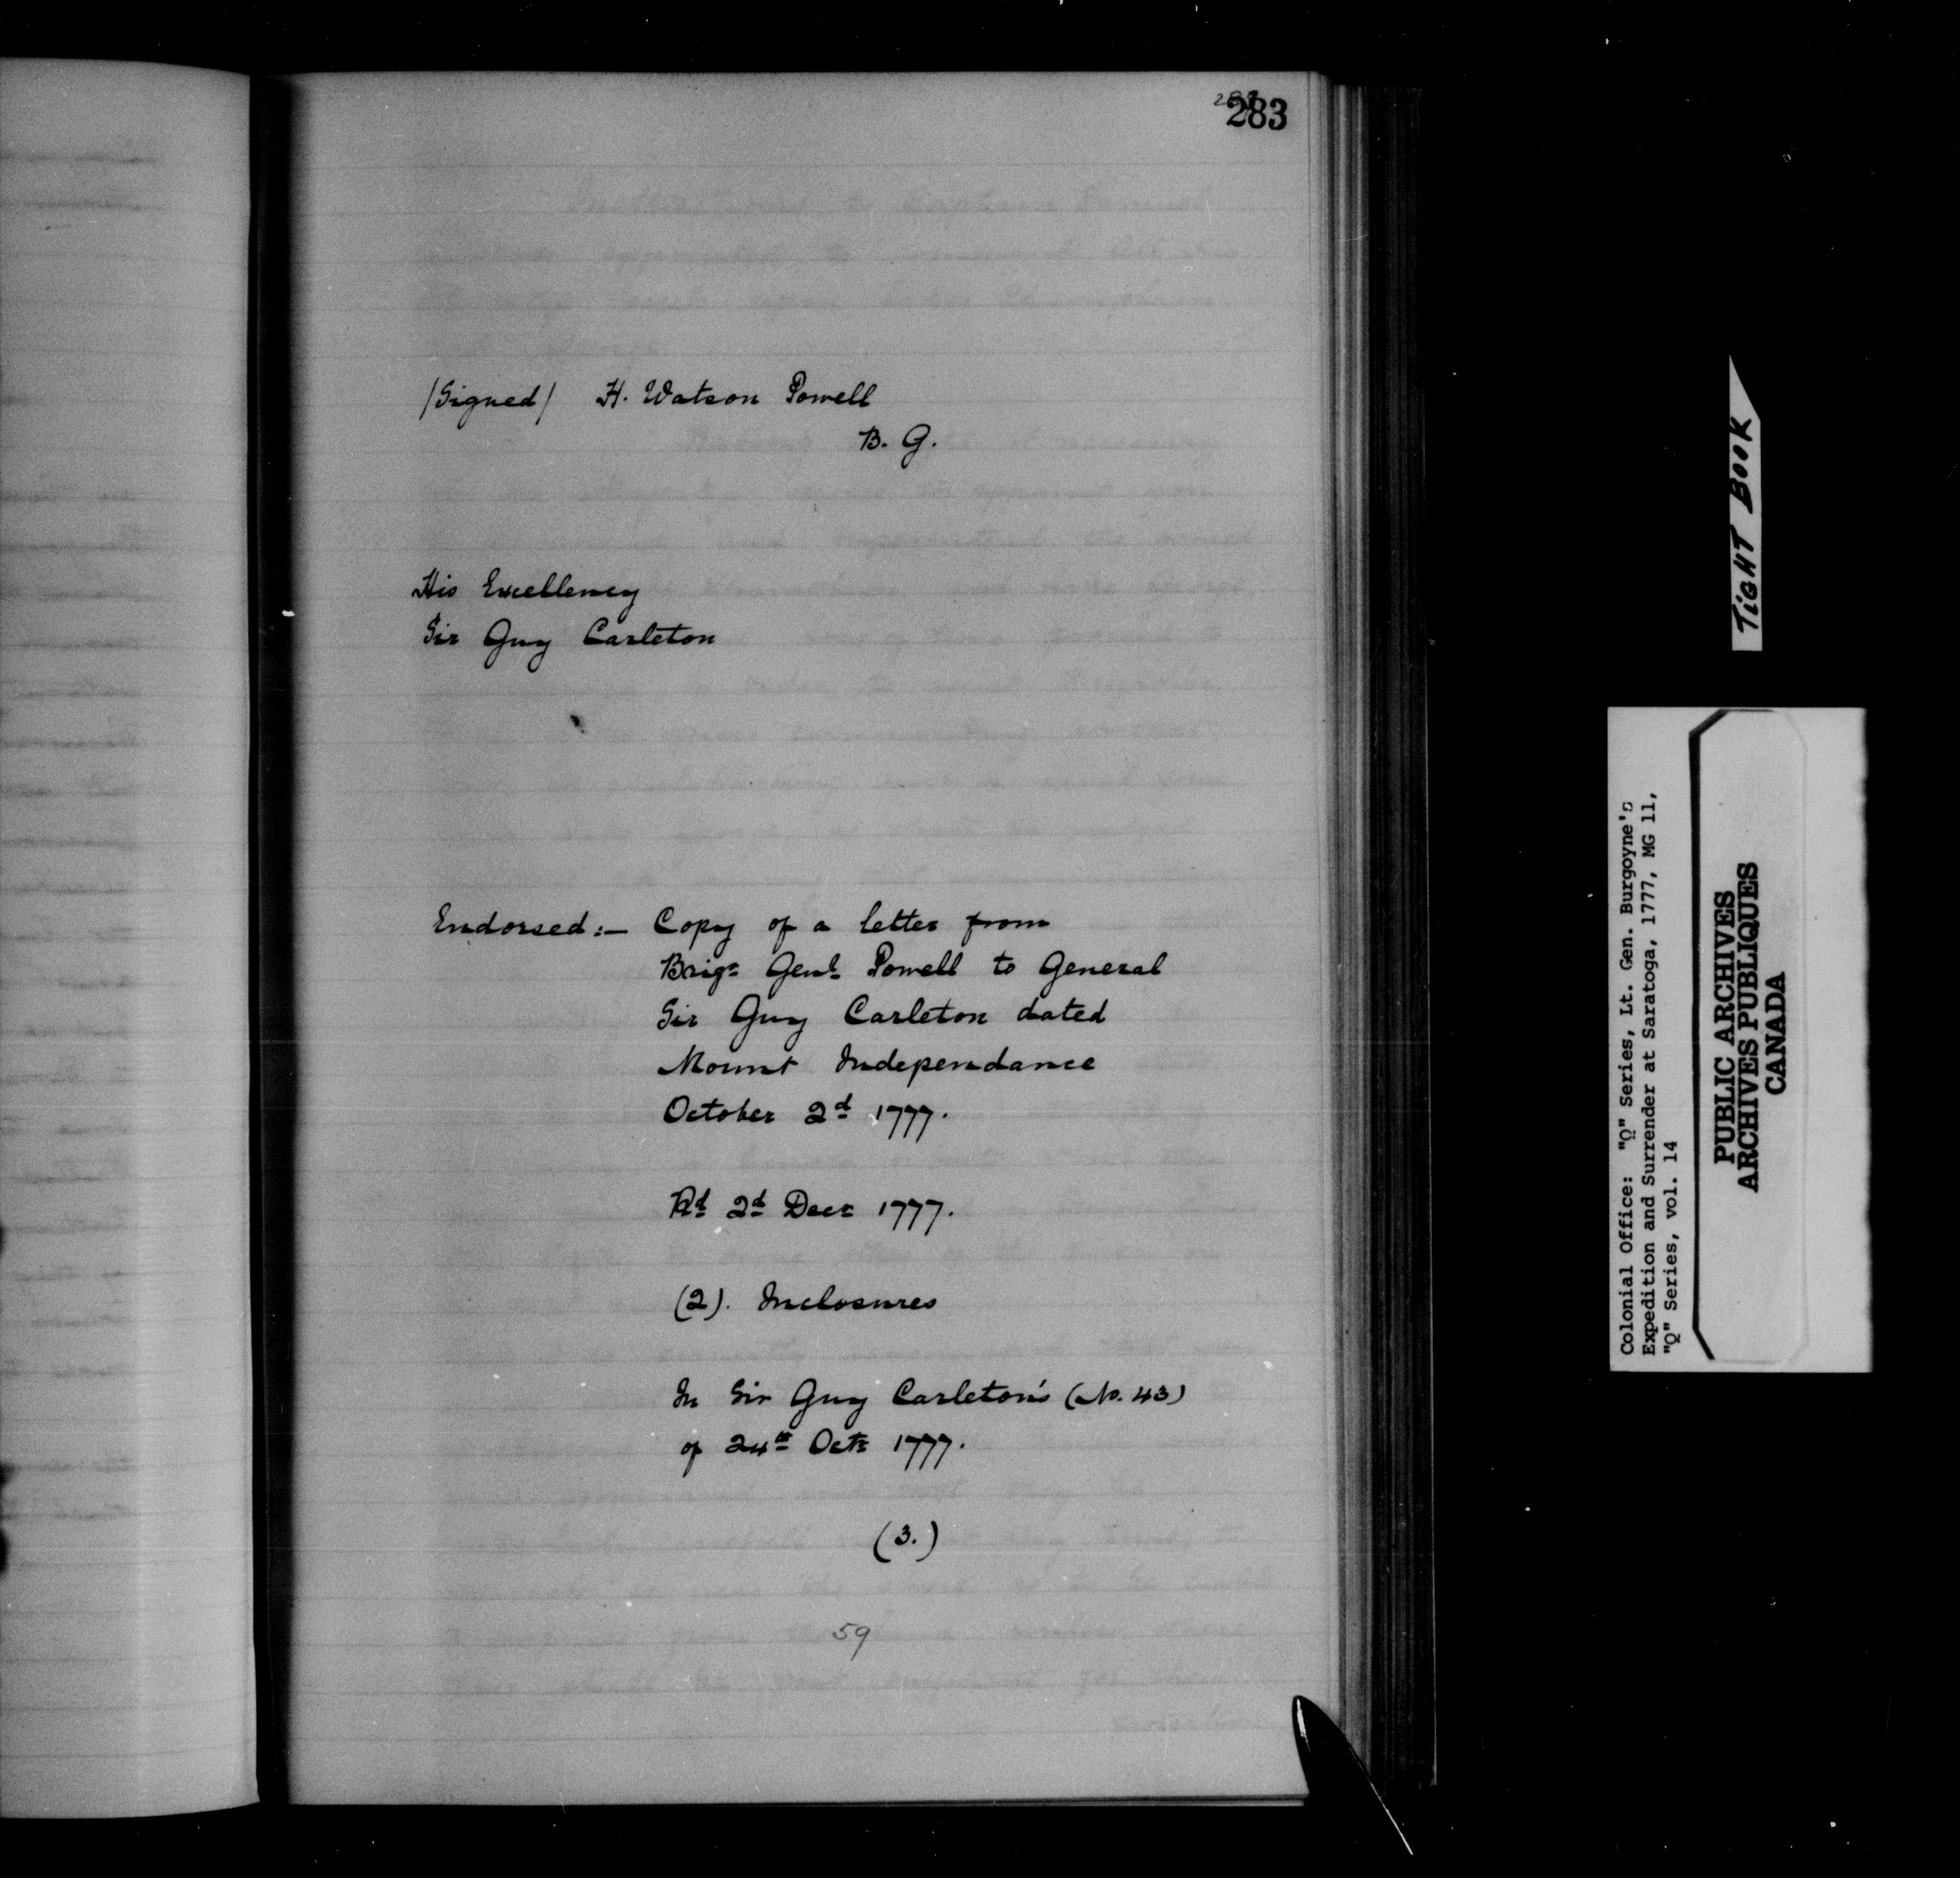 283
/Signed/ H. Watson Powell
B. G.
His Excellency
Sir Guy Carleton
Endorsed:— Copy of a letter from
Brigr Genl Powell to General
Sir Guy Carleton dated
Mount Independance
October 2d 1777.
Rd 2d Decr 1777.
(2). Inclosures
In Sir Guy Carleton's (No. 43)
of 24th Octr 1777.
(3.)
59
TIGHT BOOK
Colonial Office: "Q" Series, Lt. Gen. Burgoyne's
Expedition and Surrender at Saratoga, 1777, MG 11,
"Q" Series, vol. 14
PUBLIC ARCHIVES
ARCHIVES PUBLIQUES
CANADA